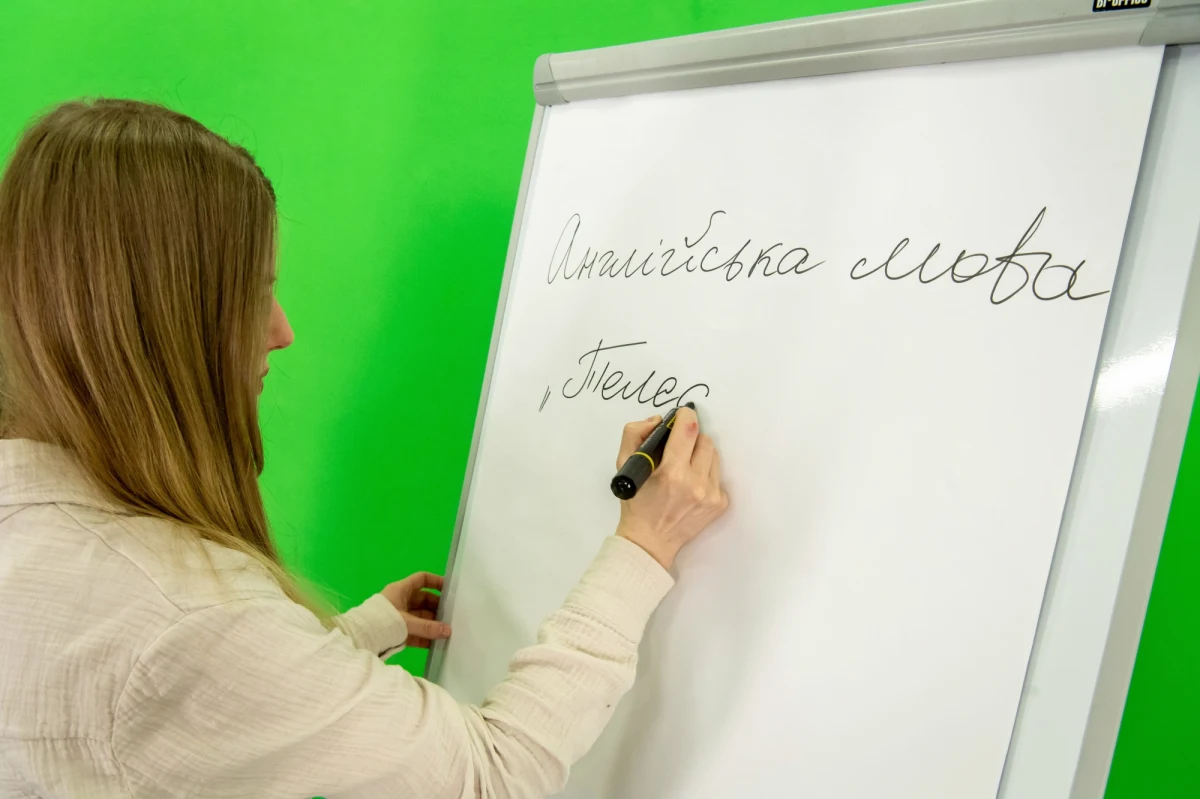 BI-OFFICE
Англійська мова
„Телес